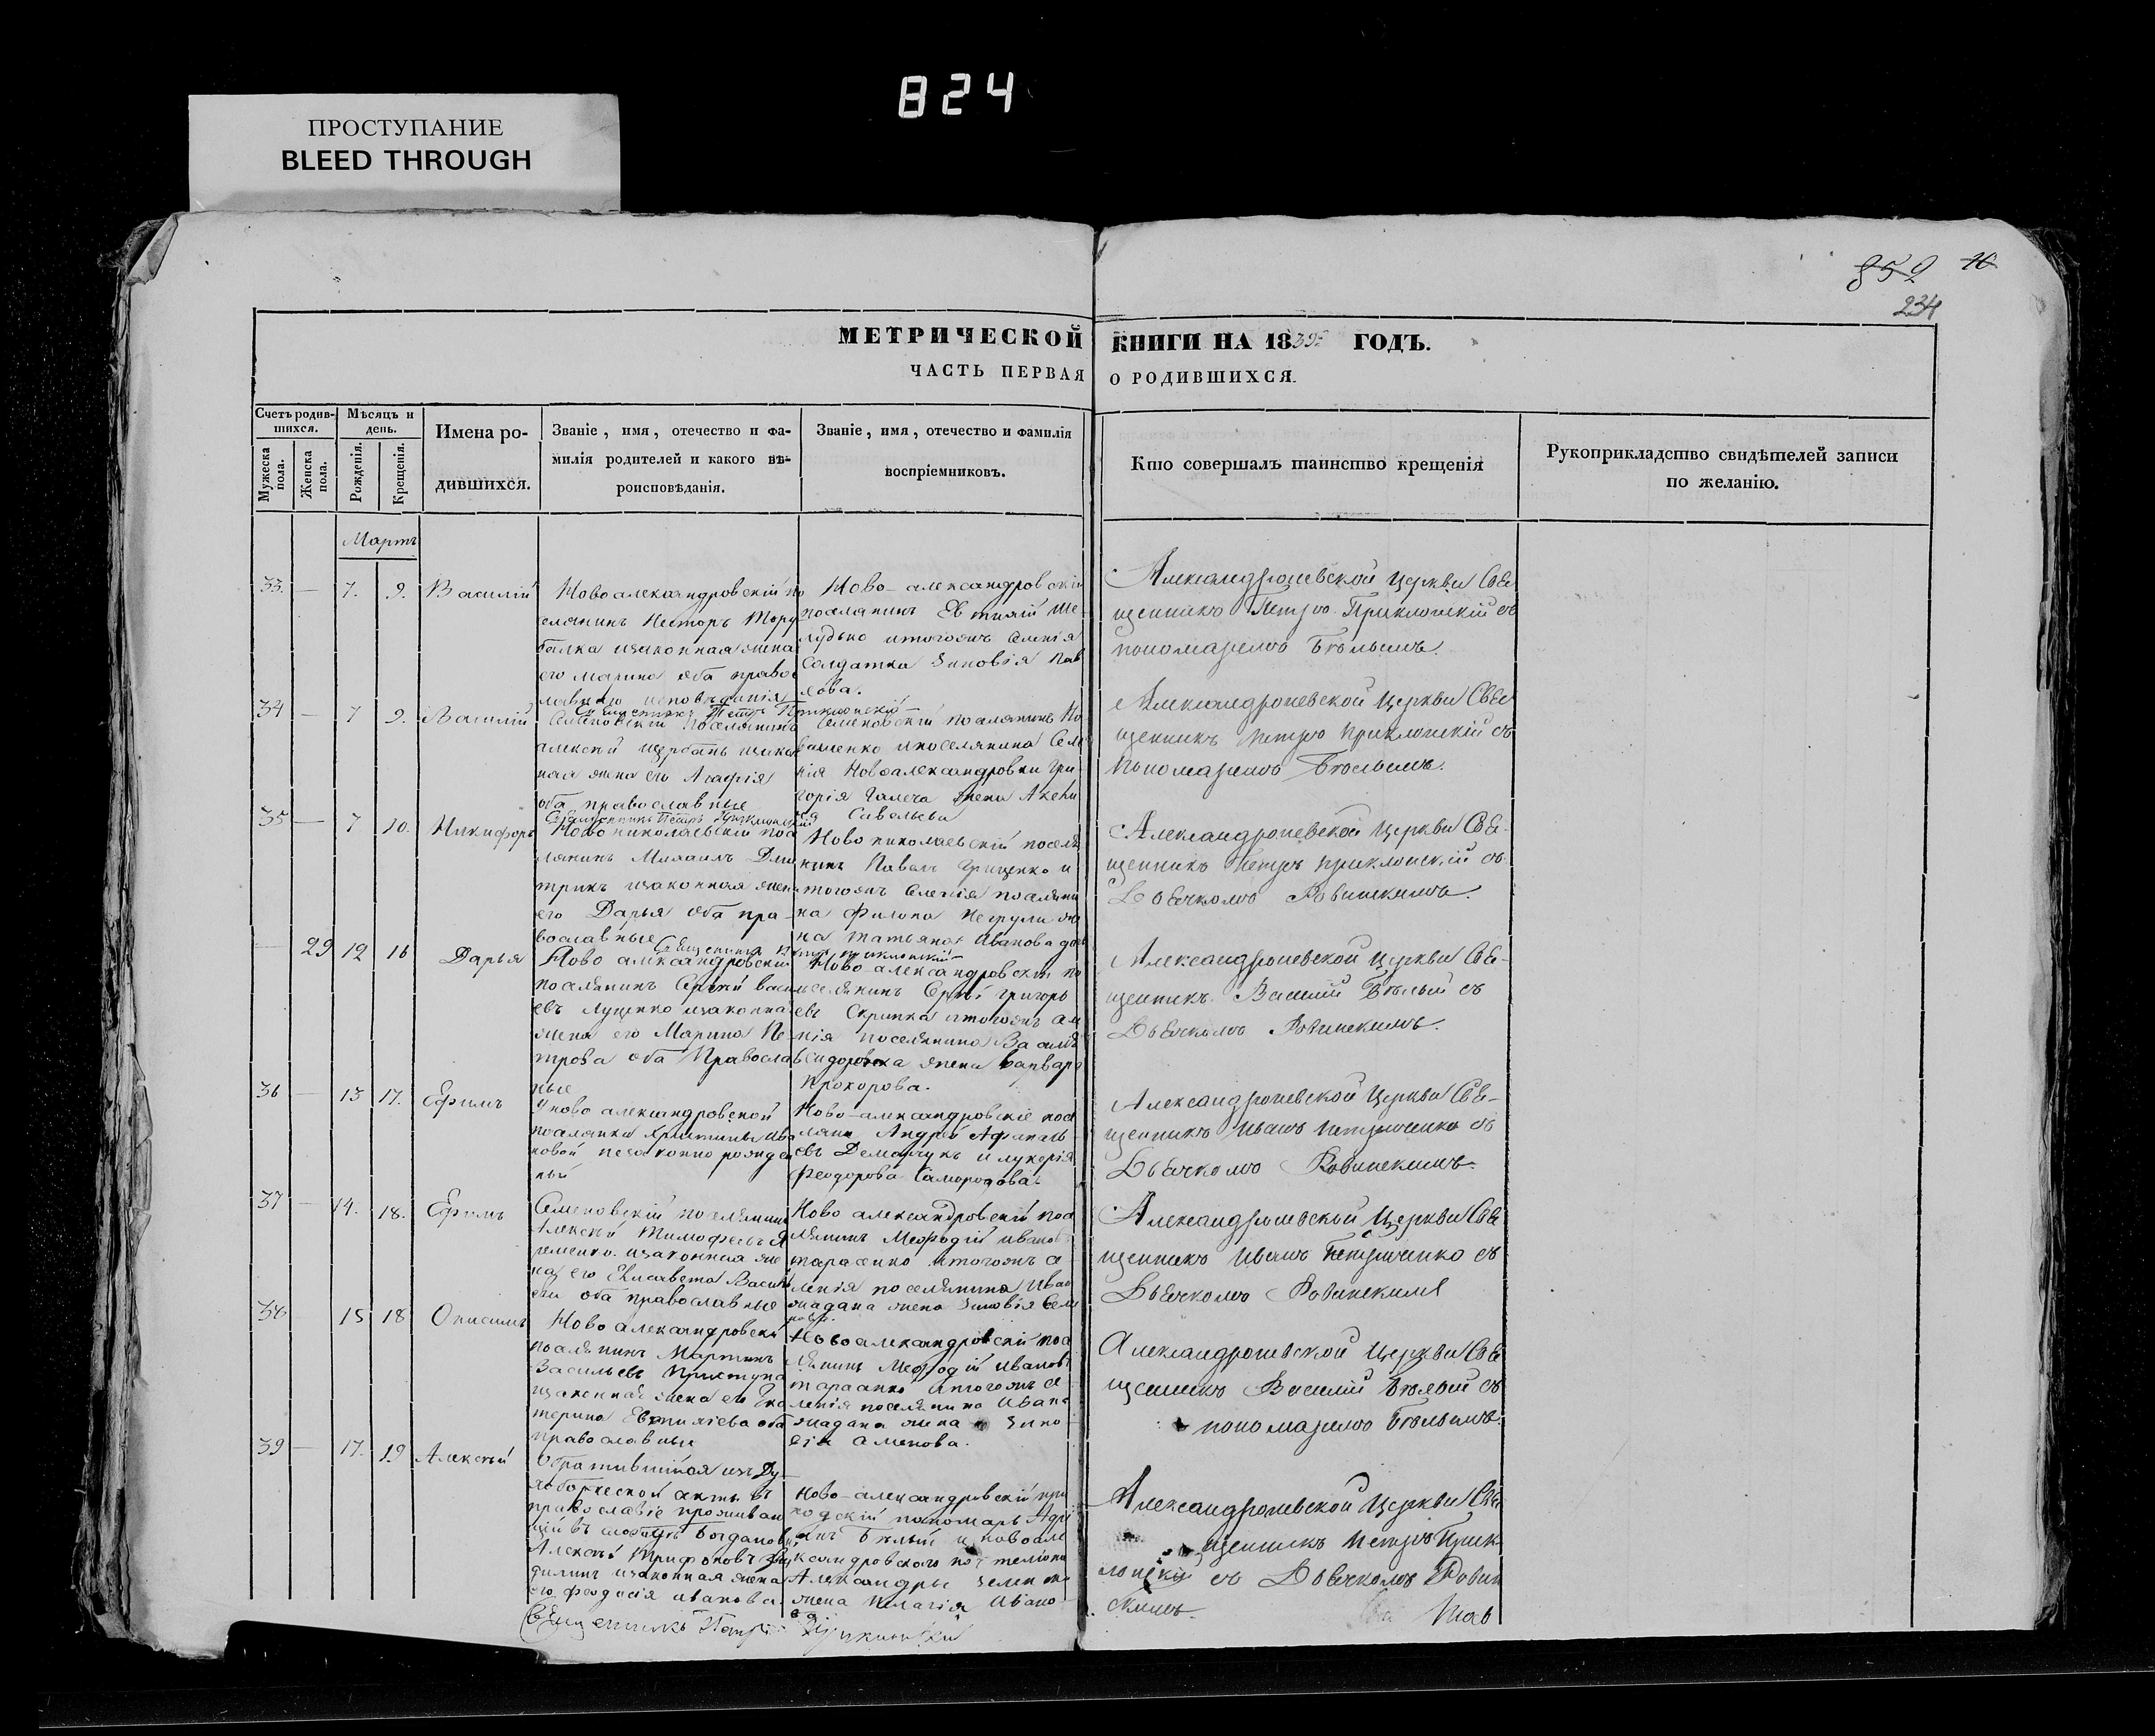 824
ПРОСТУПАНИЕ
BLEED THROUGH
859 16
234
МЕТРИЧЕСКОЙ КНИГИ НА 1839: ГОДЪ.
ЧАСТЬ ПЕРВАЯ О РОДИВШИХСЯ.
Счетъ родив-
шихся.
Мужеска пола.
Женска пола.
Мѣсяцъ и
день.
Рожденія.
Крещенія.
Имена ро-
дившихся.
Званіе, имя, отечество и фа-
милія родителей и какого вѣ-
роисповѣданія.
Званіе, имя, отечество и фамилія
воспріемниковъ.
Кто совершалъ таинство крещенія
Рукоприкладство свидѣтелей записи
по желанію.
Мартъ
33. — 7. 9. Василій
Новоалександровскій по
селянинъ Несторъ
его Марина оба правос
Ново-александровскій
поселянинъ
солдатка Зиновія Пав
лова.
Александроневской Церкви Свя
щенникъ Петръ Приклонскій съ
пономаремъ Бѣлымъ.
34 — 7 9. Василій
Священникъ Петръ Приклонскій
Семеновскій поселянинъ
Алексѣй Щербань и закон
ная жена его Агафія
оба православные
Семеновскій поселянинъ
Новоалександровки Гри
горія жена
Савельева
Александроневской Церкви Свя
щенникъ Петръ Приклонскій съ
Пономаремъ Бѣлымъ.
35 — 7 10. Никифоръ
Священникъ Петръ Приклонскій
Ново николаевскій посе
лянинъ Михаилъ Дми
трикъ и законная жена
его Дарья оба пра-
вославные
Ново николаевскій поселя
нинъ Павелъ Гриценко и
тогожъ селенія поселяни
на Филипа Негрули же
на Татьяна Иванова дочь
Александроневской Церкви Свя-
щенникъ Петръ Приклонскій съ
Дьячкомъ Ровинскимъ.
— 29 12 16 Дарья
Священникъ Петръ Приклонскій
Ново александровскій
поселянинъ Сергій Василь
евъ Луценко и законна
жена его Марина Пе
трова оба Православ
ные
Ново александровскій по
селянинъ Сергій Григорь
евъ Скрипка и тогожъ сел
нія поселянина Василя
Сидоренка жена Варвара
Прохорова.
Александроневской Церкви Свя-
щенникъ Василій Бѣлый съ
Дьячкомъ Ровинскимъ.
36 — 13 17. Ефимъ
У ново александровской
поселянки Христины Ива
новой незаконно рожден
ный
Ново-александровскіе посе
ляне Андрей Афанась
евъ Демянчукъ и Лукерія
Феодорова Самородова.
Александроневской Церкви Свя-
щенникъ Иванъ Петриченко съ
Дьячкомъ Ровинскимъ.
37 — 14. 18. Ефимъ
Семеновскій поселянинъ
Алексѣй Тимофеевъ Я
ременко и законная же
на его Елисавета Василь
ева оба православные
Ново александровскій посе
лянинъ Мефодій Ивановъ
Тарасенко и тогожъ се
ленія поселянина Ивана
Жадана жена Зиновія Семе
нова.
Александроневской Церкви Свя
щенникъ Иванъ Петриченко съ
Дьячкомъ Ровинскимъ
38 15 18 Онисимъ
Ново александровскій
поселянинъ Мартинъ
Васильевъ Приступа
и законная жена его Ека
терина Евфиміева оба
православные
Ново александровскій посе
лянинъ Мефодій Ивановъ
Тарасенко и тогожъ се
ленія поселянина Ивана
Жадана жена Зино
вія Семенова.
Александроневской Церкви Свя
щенникъ Василій Бѣлый съ
пономаремъ Бѣлымъ.
39 — 17. 19 Алексѣй
Обратившійся изъ Ду
хоборческой секты въ
православіе проживаю
щій въ слободѣ Богдановкѣ
Алексѣй Трифоновъ
и законная жена
его Феодосія Иванова
Ново-александровскій при
ходскій пономарь
Бѣлый и новоале
ксандровского
Александры
жена Пелагія Ивано
ва
Александроневской Церкви Свя
щенникъ Петръ Прик
лонскій съ Дьячкомъ Ровин
скимъ.
Священникъ Петръ Приклонскій